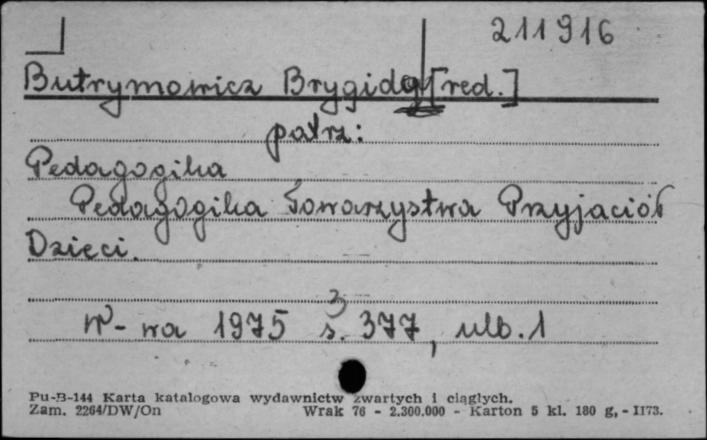 211916
Butrymowicz Brygida [red.]
patrz:
Pedagogika
Pedagogika Towarzystwa Przyjaciół
Dzieci.
3
W-wa 1975 s. 377, ulb. 1
Pu-B-144 Karta katalogowa wydawnictw zwartych i ciągłych.
Zam. 2264/DW/On Wrak 76 - 2.300.000 - Karton 5 kl. 180 g, - II73.